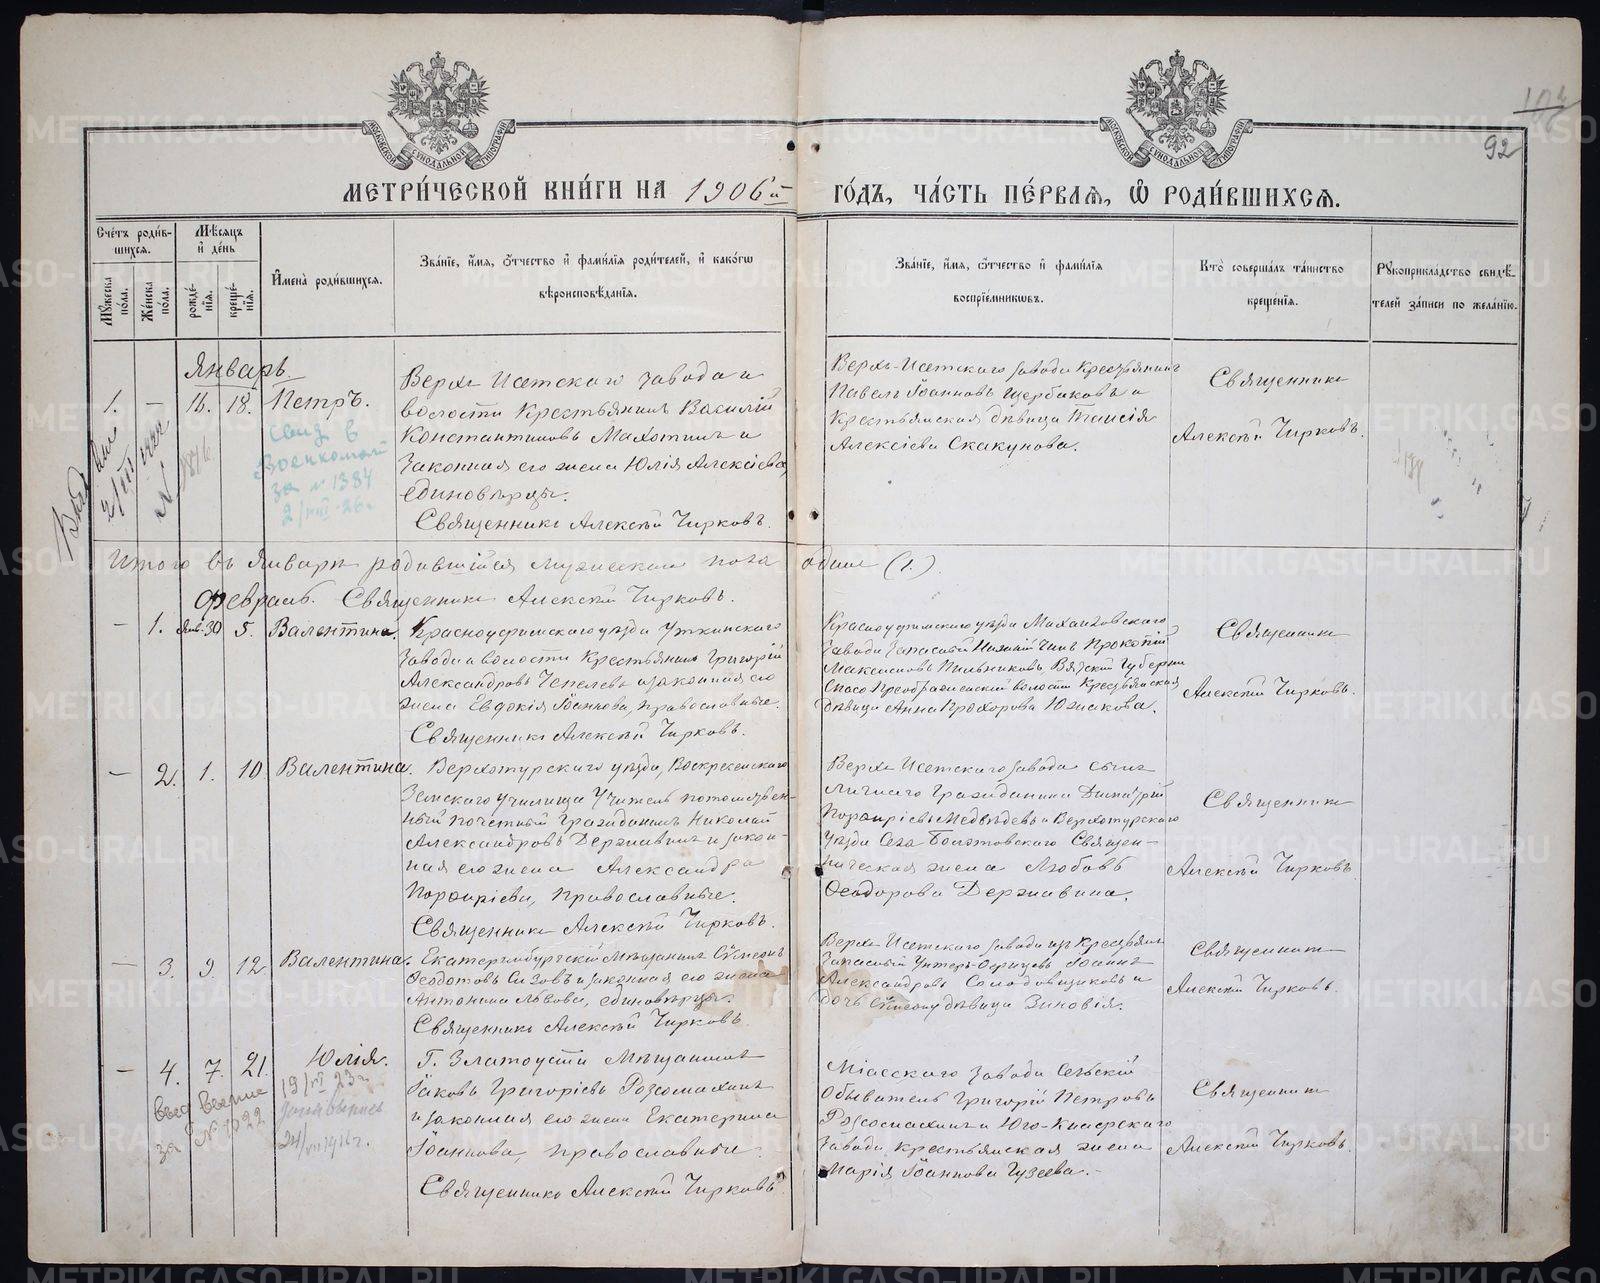 МЕТРИ́ЧЕСКОЙ КНИ́ГИ НА 1906й ГО́ДЪ, ЧА́СТЬ ПЕ́РВАѦ, Ѡ҆ РОДИ́ВШИХСѦ.
92
МОСКОВСКОЙ СѴНОДАЛЬНОЙ ТИПОГРАФІИ
МОСКОВСКОЙ СѴНОДАЛЬНОЙ ТИПОГРАФІИ
Сче́тъ роди́в-
шихся.
Му́жеска по́ла.
Же́нска по́ла.
Мѣ́сяцъ и де́нь
рожде́-
нія.
креще́-
нія.
Имена̀ роди́вшихся.
Зва́ніе, и́мя, о́тчество и фами́лія роди́телей, и како́гѡ
вѣроисповѣ́данія.
Зва́ніе, и́мя, о́тчество и фами́лія
воспріе́мникѡвъ.
Кто̀ соверша́лъ та́инство
креще́нія.
Рукоприкла́дство свидѣ́-
телей за́писи по жела́нію.
Январь.
1. — 16. 18. Петръ.
Верхъ-Исетскаго завода и
волости Крестьянинъ Василій
Константиновъ Махотинъ и
законная его жена Юлія Алексіева,
единоверцы.
Священникъ Алексѣй Чирковъ.
Верхъ-Исетскаго завода Крестьянинъ
Павелъ Іоанновъ Щербаковъ и
Крестьянская дѣвица Таисія
Алексіева Скакунова.
Священникъ
Алексѣй Чирковъ.
свид в
Военкомат
за № 1384
2/VIII-26г
Итого въ Январѣ родившійся мужескаго пола одинъ (1.)
Февраль. Священникъ Алексѣй Чирковъ.
— 1. Янв. 30 5. Валентина.
Красноуфимскаго уѣзда Уткинскаго
завода и волости Крестьянинъ Григорій
Александровъ Чепелевъ и законная его
жена Евдокія Іоаннова, православные.
Священникъ Алексѣй Чирковъ.
Красноуфимскаго уѣзда Михайловскаго
завода запасный Нижній Чинъ Прокопій
Максимовъ Пильниковъ, Вятской Губерніи
Спасо Преображенской волости Крестьянская
дѣвица Анна Прохорова Южакова.
Священникъ
Алексѣй Чирковъ.
— 2. 1. 10. Валентина.
Верхотурскаго уѣзда, Воскресенскаго
Земскаго училища Учитель потомствен-
ный почетный Гражданинъ Николай
Александровъ Державинъ и закон-
ная его жена Александра
Порфиріева, православные.
Священникъ Алексѣй Чирковъ.
Верхъ Исетскаго завода сынъ
личнаго Гражданина Димитрій
Порфиріевъ Медвѣдевъ и Верхотурскаго
уѣзда Села Болотовскаго Священ-
ническая жена Любовь
Ѳеодорова Державина.
Священникъ
Алексѣй Чирковъ.
— 3. 9. 12. Валентина.
Екатеринбургскій Мѣщанинъ Сѵмеонъ
Ѳеодотовъ Сизовъ и законная его жена
Антонина Львова, единовѣрцы.
Священникъ Алексѣй Чирковъ.
Верхъ Исетскаго завода изъ Крестьянъ
Запасный Унтеръ-Офицеръ Іоаннъ
Александровъ Солодовщиковъ и
дочь дѣвица Зиновія.
Священникъ
Алексѣй Чирковъ.
— 4. 7. 21. Юлія.
Г. Златоуста Мѣщанинъ
Іаковъ Григоріевъ Розсомахинъ
и законная его жена Екатерина
Іоаннова, православные.
Священникъ Алексѣй Чирковъ
Міасскаго завода Сельскій
Обыватель Григорій Петровъ
Розсомахинъ и Юго-Кнауфскаго
завода Крестьянская жена
Марія Іоаннова Гузеева.
Священникъ
Алексѣй Чирковъ.
19/VI 23г
№ 1022
METRIKI.GASO-URAL.RU